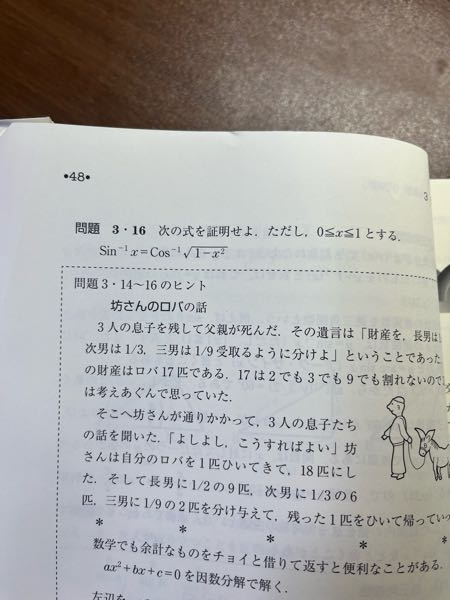 •48•
3
問題 3・16 次の式を証明せよ．ただし，0≦x≦1とする．
Sin⁻¹x=Cos⁻¹√(1−x²)
問題3・14〜16のヒント
坊さんのロバの話
3人の息子を残して父親が死んだ．その遺言は「財産を，長男は
次男は1/3．三男は1/9受取るように分けよ」ということであった
の財産はロバ17匹である．17は2でも3でも9でも割れないので
は考えあぐんで思っていた．
そこへ坊さんが通りかかって，3人の息子たち
の話を聞いた．「よしよし，こうすればよい」坊
さんは自分のロバを1匹ひいてきて，18匹にし
た．そして長男に1/2の9匹，次男に1/3の6
匹，三男に1/9の2匹を分け与えて，残った1匹をひいて帰ってい
* * * * *
数学でも余計なものをチョイと借りて返すと便利なことがある．
ax²+bx+c=0を因数分解で解く．
左辺を